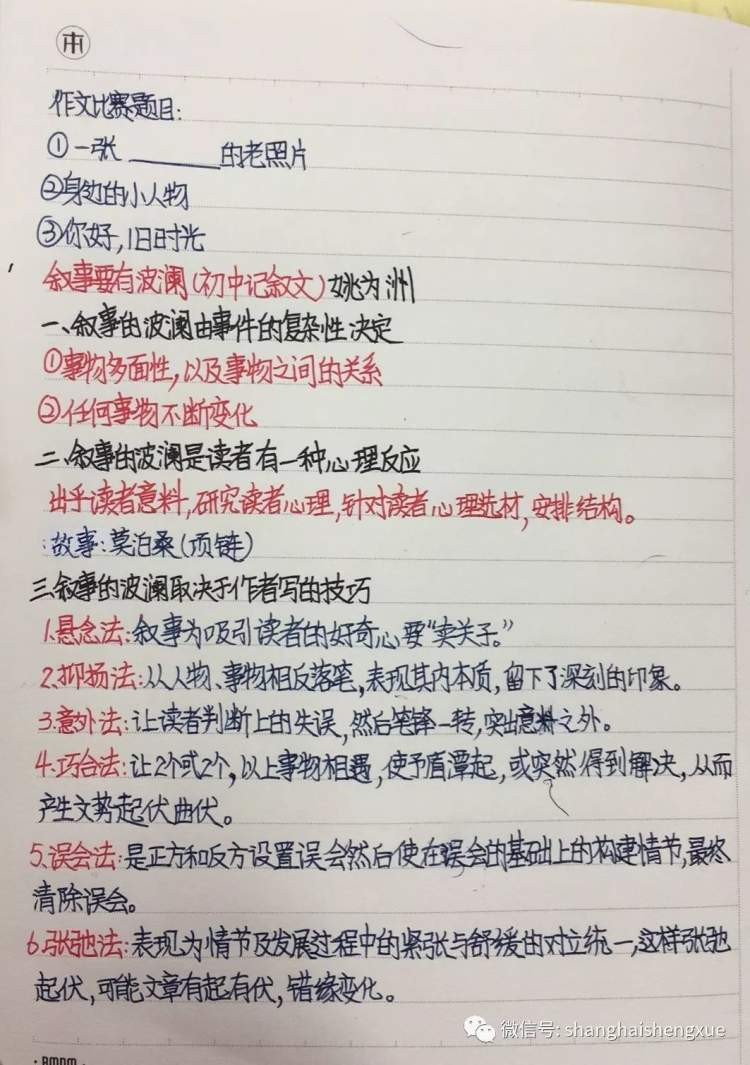 本
作文比赛题目:
①一张______的老照片
②身边的小人物
③你好,旧时光
叙事要有波澜(初中记叙文)姚为洲
一、叙事的波澜由事件的复杂性决定
①事物多面性,以及事物之间的关系
②任何事物不断变化
二、叙事的波澜是读者有一种心理反应
出乎读者意料,研究读者心理,针对读者心理选材,安排结构。
故事:莫泊桑(项链)
三、叙事的波澜取决于作者写的技巧
1.悬念法:叙事为吸引读者的好奇心要“卖关子。”
2.抑扬法:从人物、事物相反落笔,表现其内本质,留下了深刻的印象。
3.意外法:让读者判断上的失误,然后笔锋一转,突出意料之外。
4.巧合法:让2个或2个,以上事物相遇,使予盾潭起,或突然得到解决,从而
产生文势起伏曲伏。
5.误会法:是正方和反方设置误会然后使在误会的基础上的构建情节,最终
清除误会。
6.张弛法:表现为情节及发展过程中的紧张与舒缓的对立统一,这样张弛
起伏,可能文章有起有伏,错缘变化。
微信号: shanghaishengxue